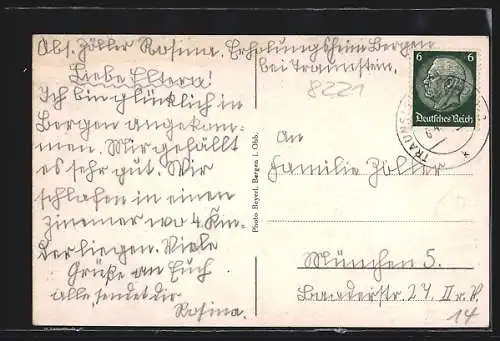 Abs. Zöller Rosina. Erholungsheim Bergen
bei Traunstein.
Liebe Eltern!
Ich bin glücklich in
Bergen angekom-
men. Mir gefällt
es sehr gut. Wir
schlafen in einen
Zimmer wo 4 Kin-
der liegen. Viele
Grüße an Euch
alle, sendet dir
Rosina.
Photo Beyerl, Bergen i. Obb.
8221
6 6
Deutsches Reich
An
Familie Zöller
München 5.
Baaderstr. 27. II r. V.
14